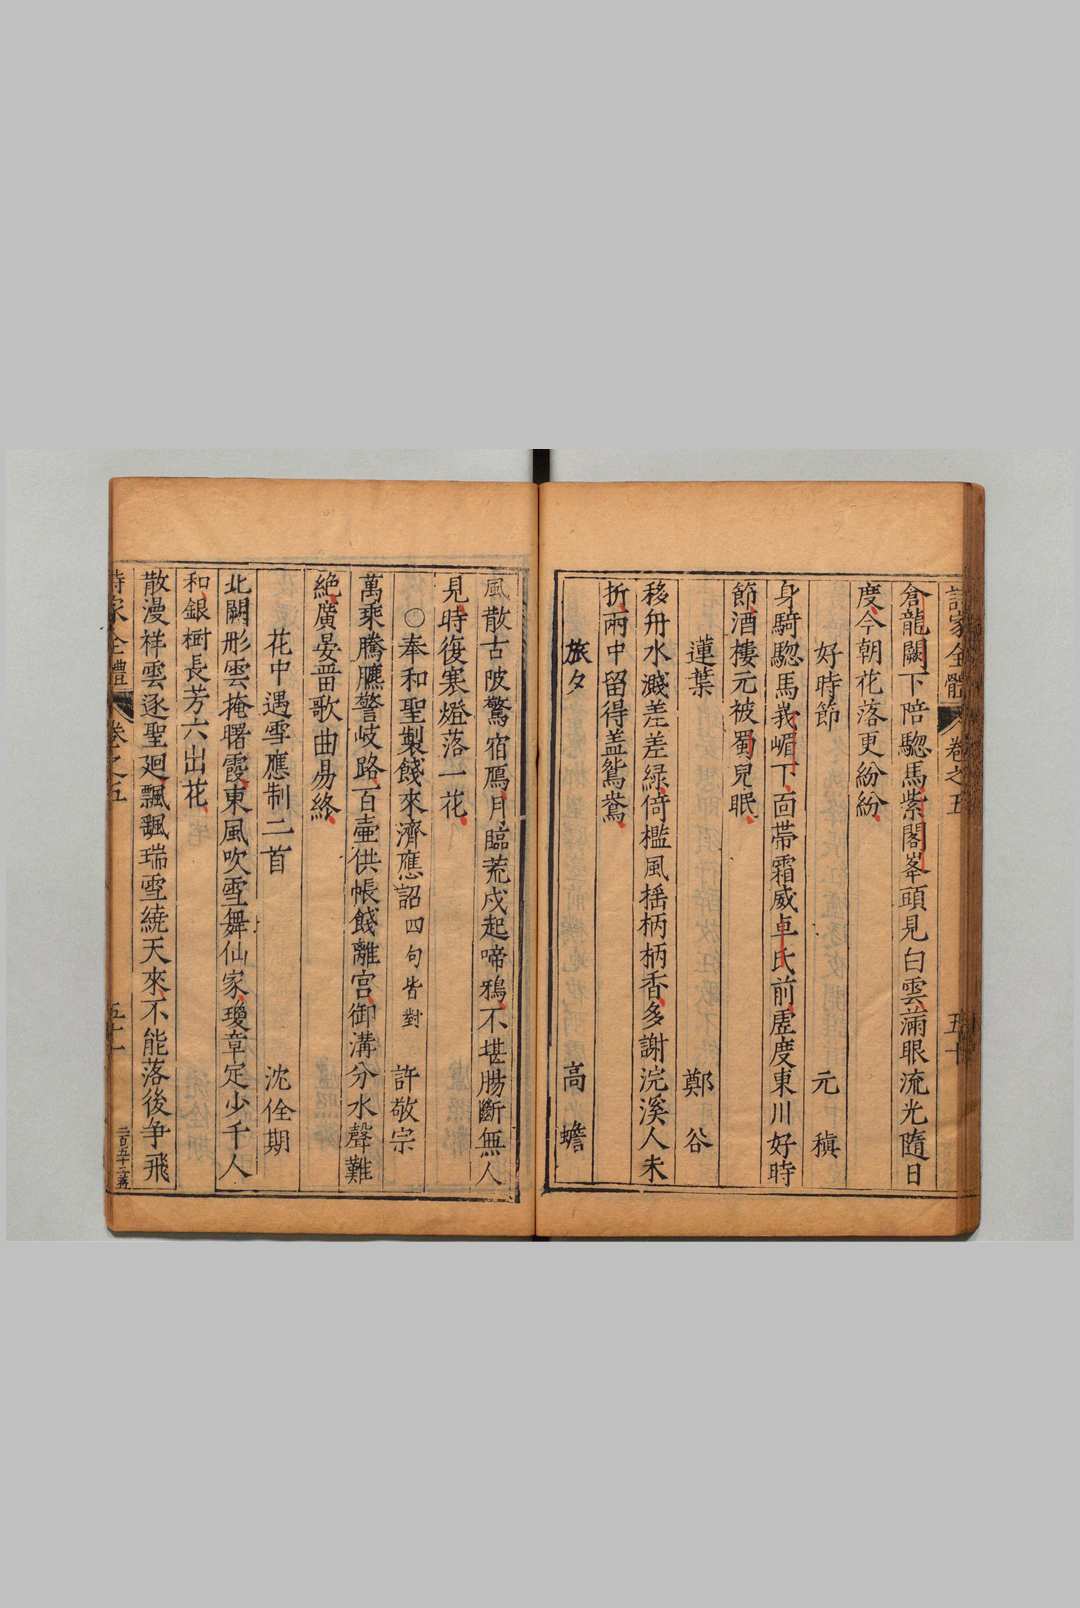 詩家全體 卷之五 五十
倉龍闕下陪驄馬紫閣峯頭見白雲滿眼流光隨日
度今朝花落更紛紛
好時節 元稹
身騎驄馬峩嵋下面帶霜威卓氏前虛度東川好時
節酒樓元被蜀兒眠
蓮葉 鄭谷
移舟水濺差差綠倚檻風揺柄柄香多謝浣溪人未
折雨中留得盖鴛鴦
旅夕 高蟾
風散古陂驚宿鴈月臨荒戍起啼鴉不堪腸斷無人
見時復寒燈落一花
○奉和聖製餞來濟應詔四句皆對 許敬宗
萬乘騰鑣警岐路百壷供帳餞離宫御溝分水聲難
絶廣宴當歌曲易終
花中遇雪應制二首 沈佺期
北闕彤雲掩曙霞東風吹雪舞仙家瓊章定少千人
和銀樹長芳六出花
散漫祥雲逐聖廻飄颻瑞雪繞天來不能落後争飛
詩家全體 卷之五 五十一